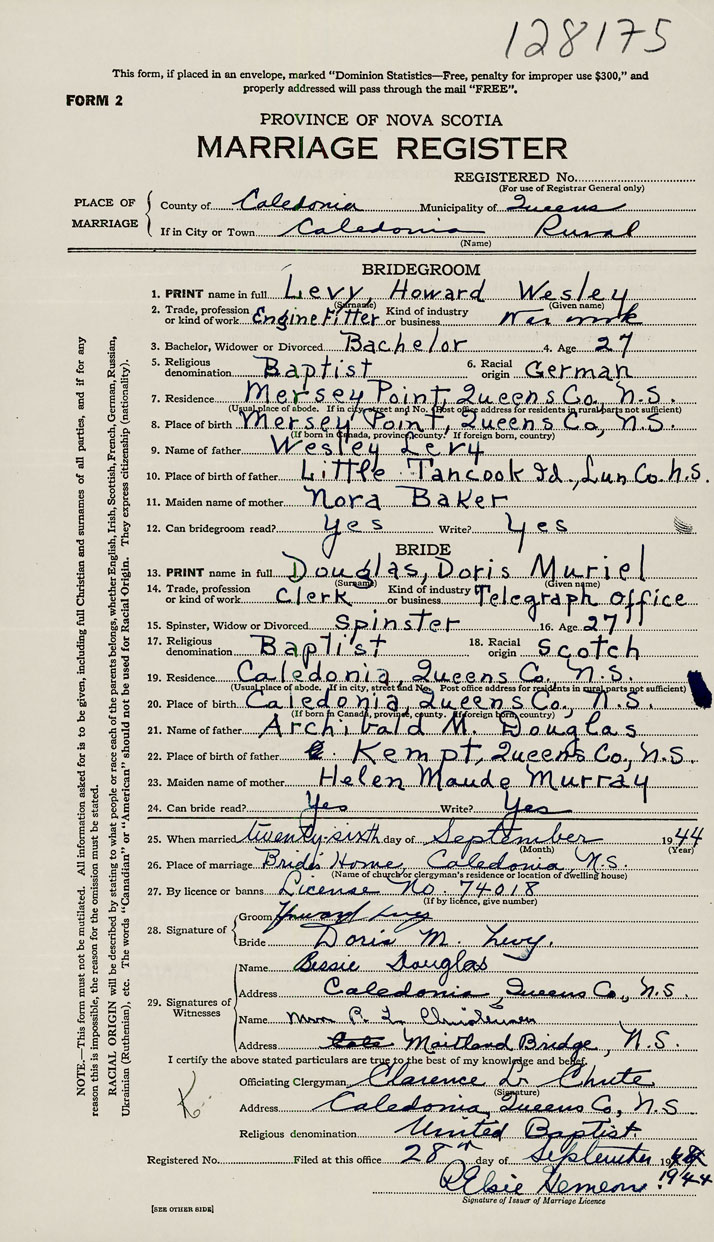 128175
This form, if placed in an envelope, marked "Dominion Statistics—Free, penalty for improper use $300," and
properly addressed will pass through the mail "FREE".
FORM 2
PROVINCE OF NOVA SCOTIA
MARRIAGE REGISTER
REGISTERED No.
(For use of Registrar General only)
PLACE OF MARRIAGE
County of Caledonia Municipality of Queens
If in City or Town Caledonia Rural
(Name)
BRIDEGROOM
1. PRINT name in full Levy, Howard Wesley
(Surname) (Given name)
2. Trade, profession or kind of work Engine Fitter Kind of industry or business War work
3. Bachelor, Widower or Divorced Bachelor 4. Age 27
5. Religious denomination Baptist 6. Racial origin German
7. Residence Mersey Point, Queens Co, N.S.
(Usual place of abode. If in city, street and No. Post office address for residents in rural parts not sufficient)
8. Place of birth Mersey Point, Queens Co, N.S.
(If born in Canada, province, county. If foreign born, country)
9. Name of father Wesley Levy
10. Place of birth of father Little Tancook Id., Lun Co. N.S.
11. Maiden name of mother Nora Baker
12. Can bridegroom read? Yes Write? Yes
BRIDE
13. PRINT name in full Douglas, Doris Muriel
(Surname) (Given name)
14. Trade, profession or kind of work Clerk Kind of industry or business Telegraph office
15. Spinster, Widow or Divorced Spinster 16. Age 27
17. Religious denomination Baptist 18. Racial origin Scotch
19. Residence Caledonia, Queens Co, N.S.
(Usual place of abode. If in city, street and No. Post office address for residents in rural parts not sufficient)
20. Place of birth Caledonia, Queens Co, N.S.
(If born in Canada, province, county. If foreign born, country)
21. Name of father Archibald M. Douglas
22. Place of birth of father Kempt, Queens Co, N.S.
23. Maiden name of mother Helen Maude Murray
24. Can bride read? Yes Write? Yes
25. When married twenty-sixth day of September 1944
(Month) (Year)
26. Place of marriage Bride's Home, Caledonia, N.S.
(Name of church or clergyman's residence or location of dwelling house)
27. By licence or banns License No. 74018
(If by licence, give number)
28. Signature of
Groom Howard Levy
Bride Doris M. Levy.
29. Signatures of Witnesses
Name Bessie Douglas
Address Caledonia, Queens Co., N.S.
Name Mrs P. L.
Address Maitland Bridge, N.S.
I certify the above stated particulars are true to the best of my knowledge and belief.
Officiating Clergyman Clarence D. Chute
(Signature)
Address Caledonia, Queens Co, N.S
Religious denomination United Baptist.
Registered No. Filed at this office 28th day of September 19
1944
Elsie
Signature of Issuer of Marriage Licence
[SEE OTHER SIDE]
NOTE.—This form must not be mutilated. All information asked for is to be given, including full Christian and surnames of all parties, and if for any
reason this is impossible, the reason for the omission must be stated.
RACIAL ORIGIN will be described by stating to what people or race each of the parents belongs, whether English, Irish, Scottish, French, German, Russian,
Ukrainian (Ruthenian), etc. The words "Canadian" or "American" should not be used for Racial Origin. They express citizenship (nationality).